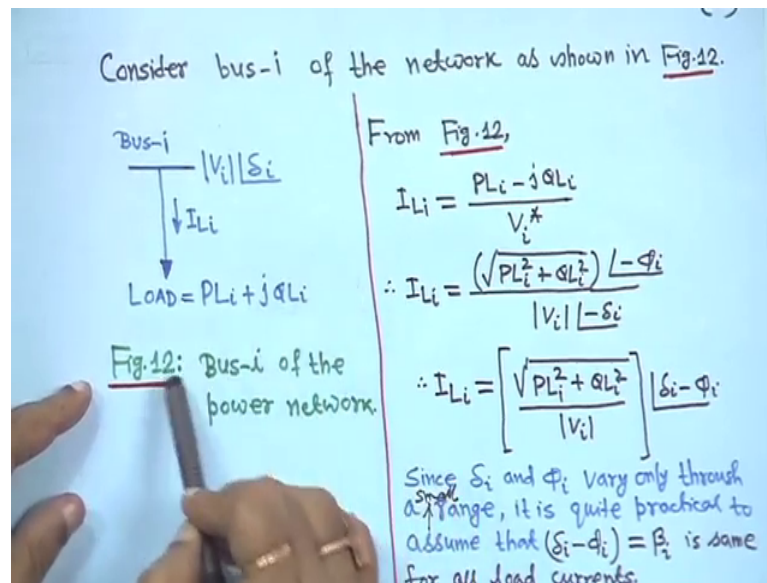 Consider bus-i of the network as shown in Fig.12.
Bus-i
|Vi|∠δi
ILi
LOAD = PLi + jQLi
Fig.12: Bus-i of the
power network.
From Fig.12,
ILi = PLi - jQLi / Vi*
∴ ILi = (√PLi² + QLi²) ∠-φi / |Vi| ∠-δi
∴ ILi = [√PLi² + QLi² / |Vi|] ∠δi - φi
Since δi and φi vary only through
a small range, it is quite practical to
assume that (δi - φi) = βi is same
for all load currents.